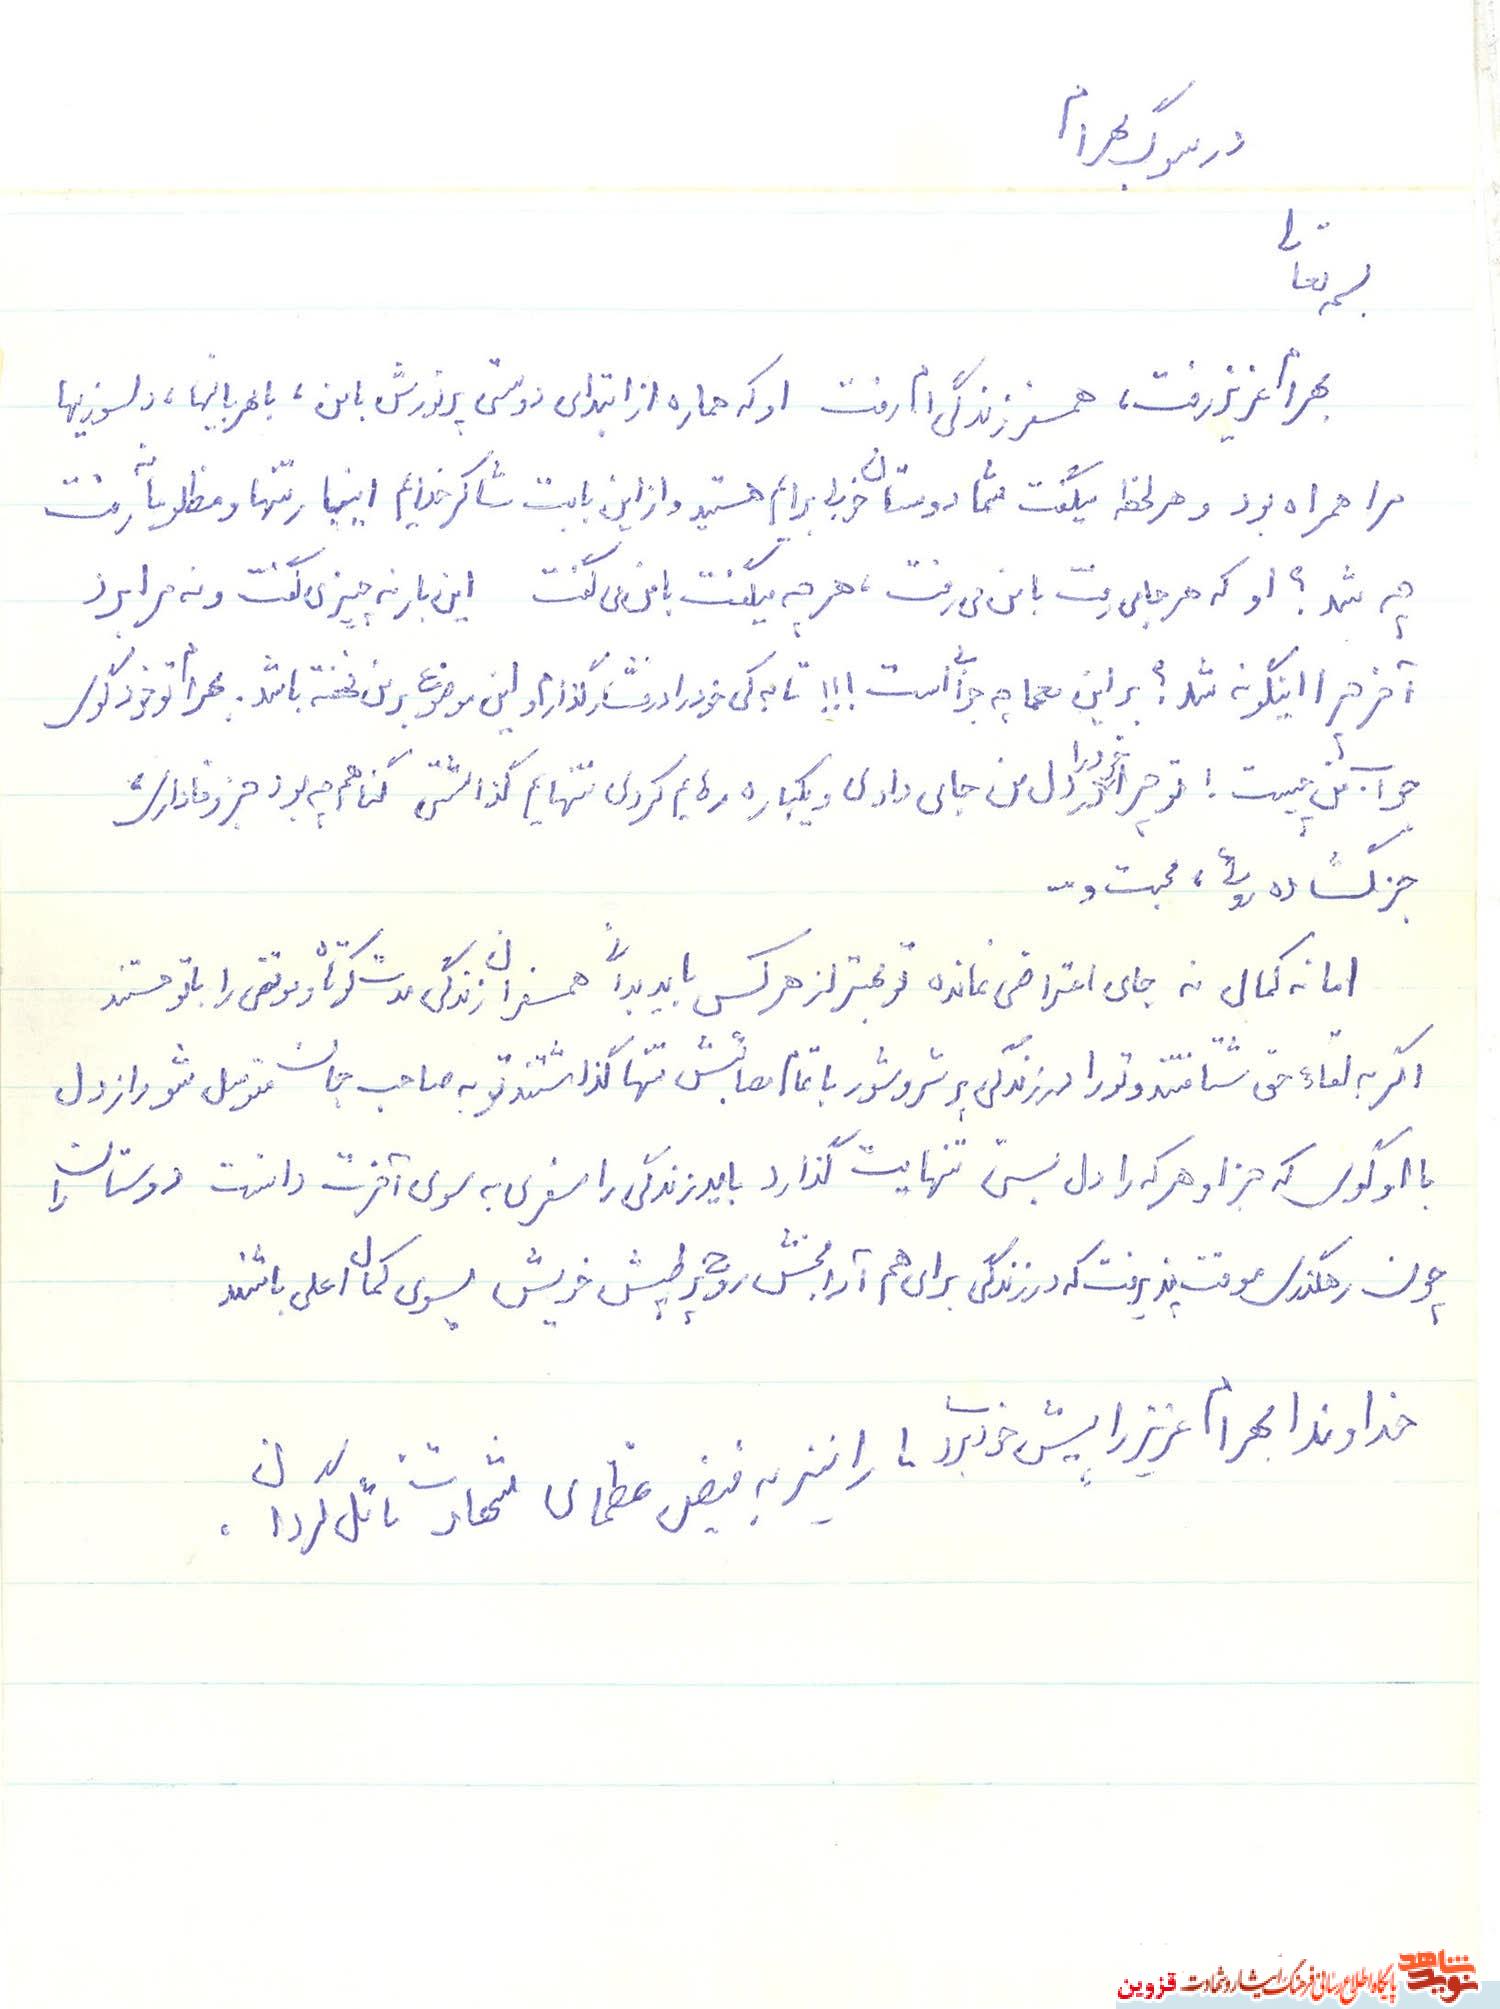 در سوگ بهرام
بسمه تعالی
بهرام عزیز رفت، همسفر زندگی ام رفت او که همواره از ابتدای دوستی پرارزش با من، با مهربانیها، دلسوزیها
مرا همراه بود و هر لحظه میگفت شما دوستان خوبی برایم هستید و از این بابت شاکر خدایم اینبار تنها و مظلومانه رفت
چه شد؟ او که هر جا می رفت با من می رفت، هر چه میگفت با من می گفت این بار نه چیزی گفت و نه مرا برد
آخر چرا اینگونه شد؟ بر این معما چه جوابی است!!! تا به کی خود را در فشار گذارم و این موضوع بر من نهفته باشد. بهرام تو خود گوی
جوابش چیست! تو چرا خود را در دل من جای دادی و یکباره رهایم کردی تنهایم گذاشتی گناهم چه بود جز وفاداری،
جز گشاده رویی، محبت و ...
اما نه کمالی نه جای اعتراضی نمانده تو بهتر از هر کس باید بدانی همسفران زندگی مدت کوتاه و موقتی را با تو هستند
اگر به لقاء حق شتافتند و تو را در زندگی پر شر و شور با تمام مصائبش تنها گذاشتند تو به صاحب جهان متوسل شو راز دل
با او گوی که جز او هر که را دل بستی تنهایت گذارد باید زندگی را سفری به سوی آخرت دانست دوستان را
چون رهگذری موقت پذیرفت که در زندگی برای هم آرامبخش روح پر طپش خویش بسوی کمال اعلی باشند
خداوندا بهرام عزیز را پیش خود بردی ما را نیز به فیض عظمای شهادت نائل گردان.
نوید شاهد پایگاه اطلاع رسانی فرهنگ ایثار و شهادت قزوین